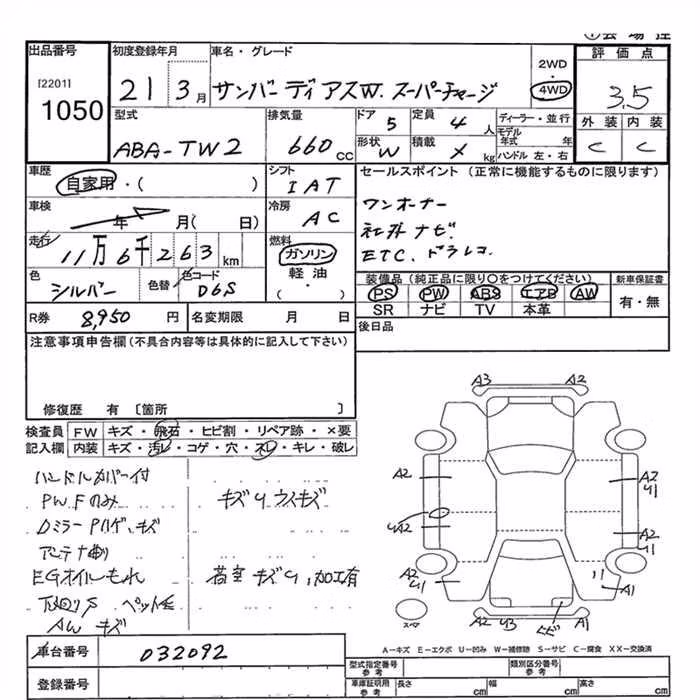 出品番号
[2201]
1050
初度登録年月
21 3月
車名・グレード
サンバー ディアスW. スーパーチャージ
2WD
4WD
評価点
3.5
外装 内装
C C
型式
ABA-TW2
排気量
660 CC
ドア 5
定員 4 人
形状 W
積載 × kg
ディーラー・並行
モデル年式 年
ハンドル 左・右
車歴
自家用・( )
シフト
IAT
車検
年 月( 日)
冷房
AC
走行
11万6千263 km
燃料
ガソリン
軽油
( ・ )
色
シルバー
色替
色コード
D6S
R券 8,950 円
名変期限 月 日
セールスポイント (正常に機能するものに限ります)
ワンオーナー
社外ナビ.
ETC. ドラレコ.
装備品(純正品に限り○をつけてください)
PS PW ABS エアB AW
SR ナビ TV 本革
新車保証書
有・無
後日品
注意事項申告欄(不具合内容等は具体的に記入して下さい)
修復歴 有 〔箇所 〕
検査員記入欄
FW キズ・飛石・ヒビ割・リペア跡・×要
内装 キズ・汚レ・コゲ・穴・スレ・キレ・破レ
ハンドルカバー付
PW Fのみ
Dミラー Pハゲ、キズ
アンテナ曲り
EGオイルもれ
下廻りS
AW キズ
荷室 キズU,加工有
A3 A2
A2
A2
A2
U1
A2
U1
A2
U1
A1
スペア
A2 U3
ヒビ
A1
A=キズ E=エクボ U=凹み W=補修跡 S=サビ C=腐食 XX=交換済
車台番号 032092
登録番号
型式指定番号 参考
類別区分番号 参考
車庫証明用 参考
長さ cm
幅 cm
高さ cm